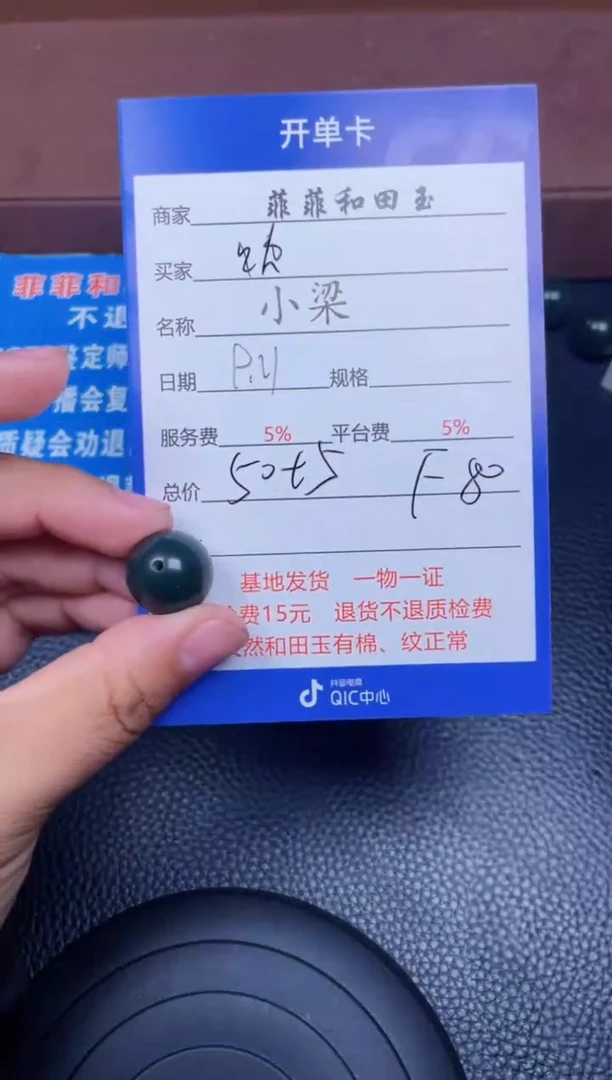 开单卡
商家 菲菲和田玉
买家
名称 小梁
日期 规格
服务费 5% 平台费 5%
总价 50+5 F80
基地发货 一物一证
费15元 退货不退质检费
然和田玉有棉、纹正常
抖音电商
QIC中心
菲菲和
不退
鉴定师
播会复
质疑会劝退